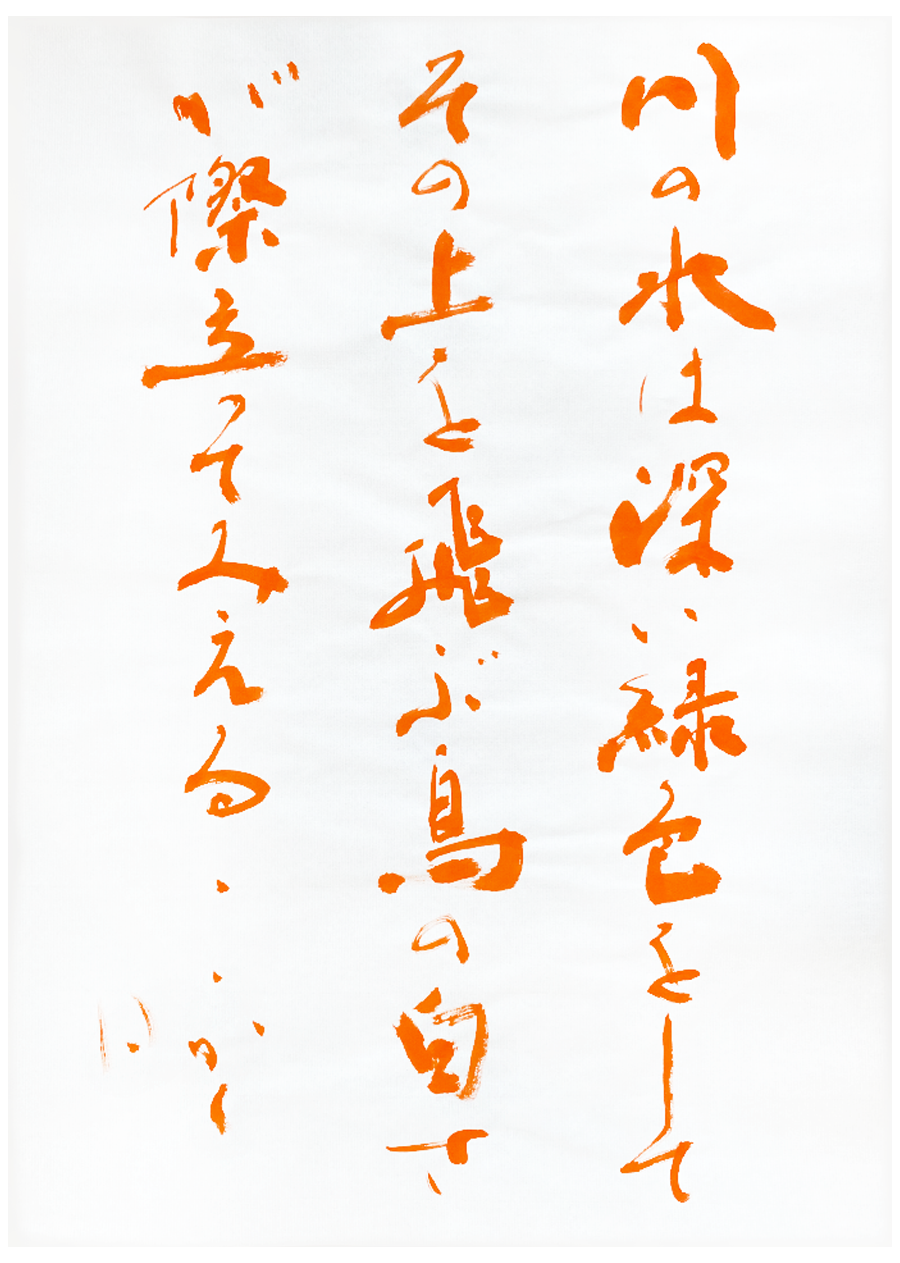 川の水は深い緑色をして
その上を飛ぶ鳥の白さ
が際立ってみえる